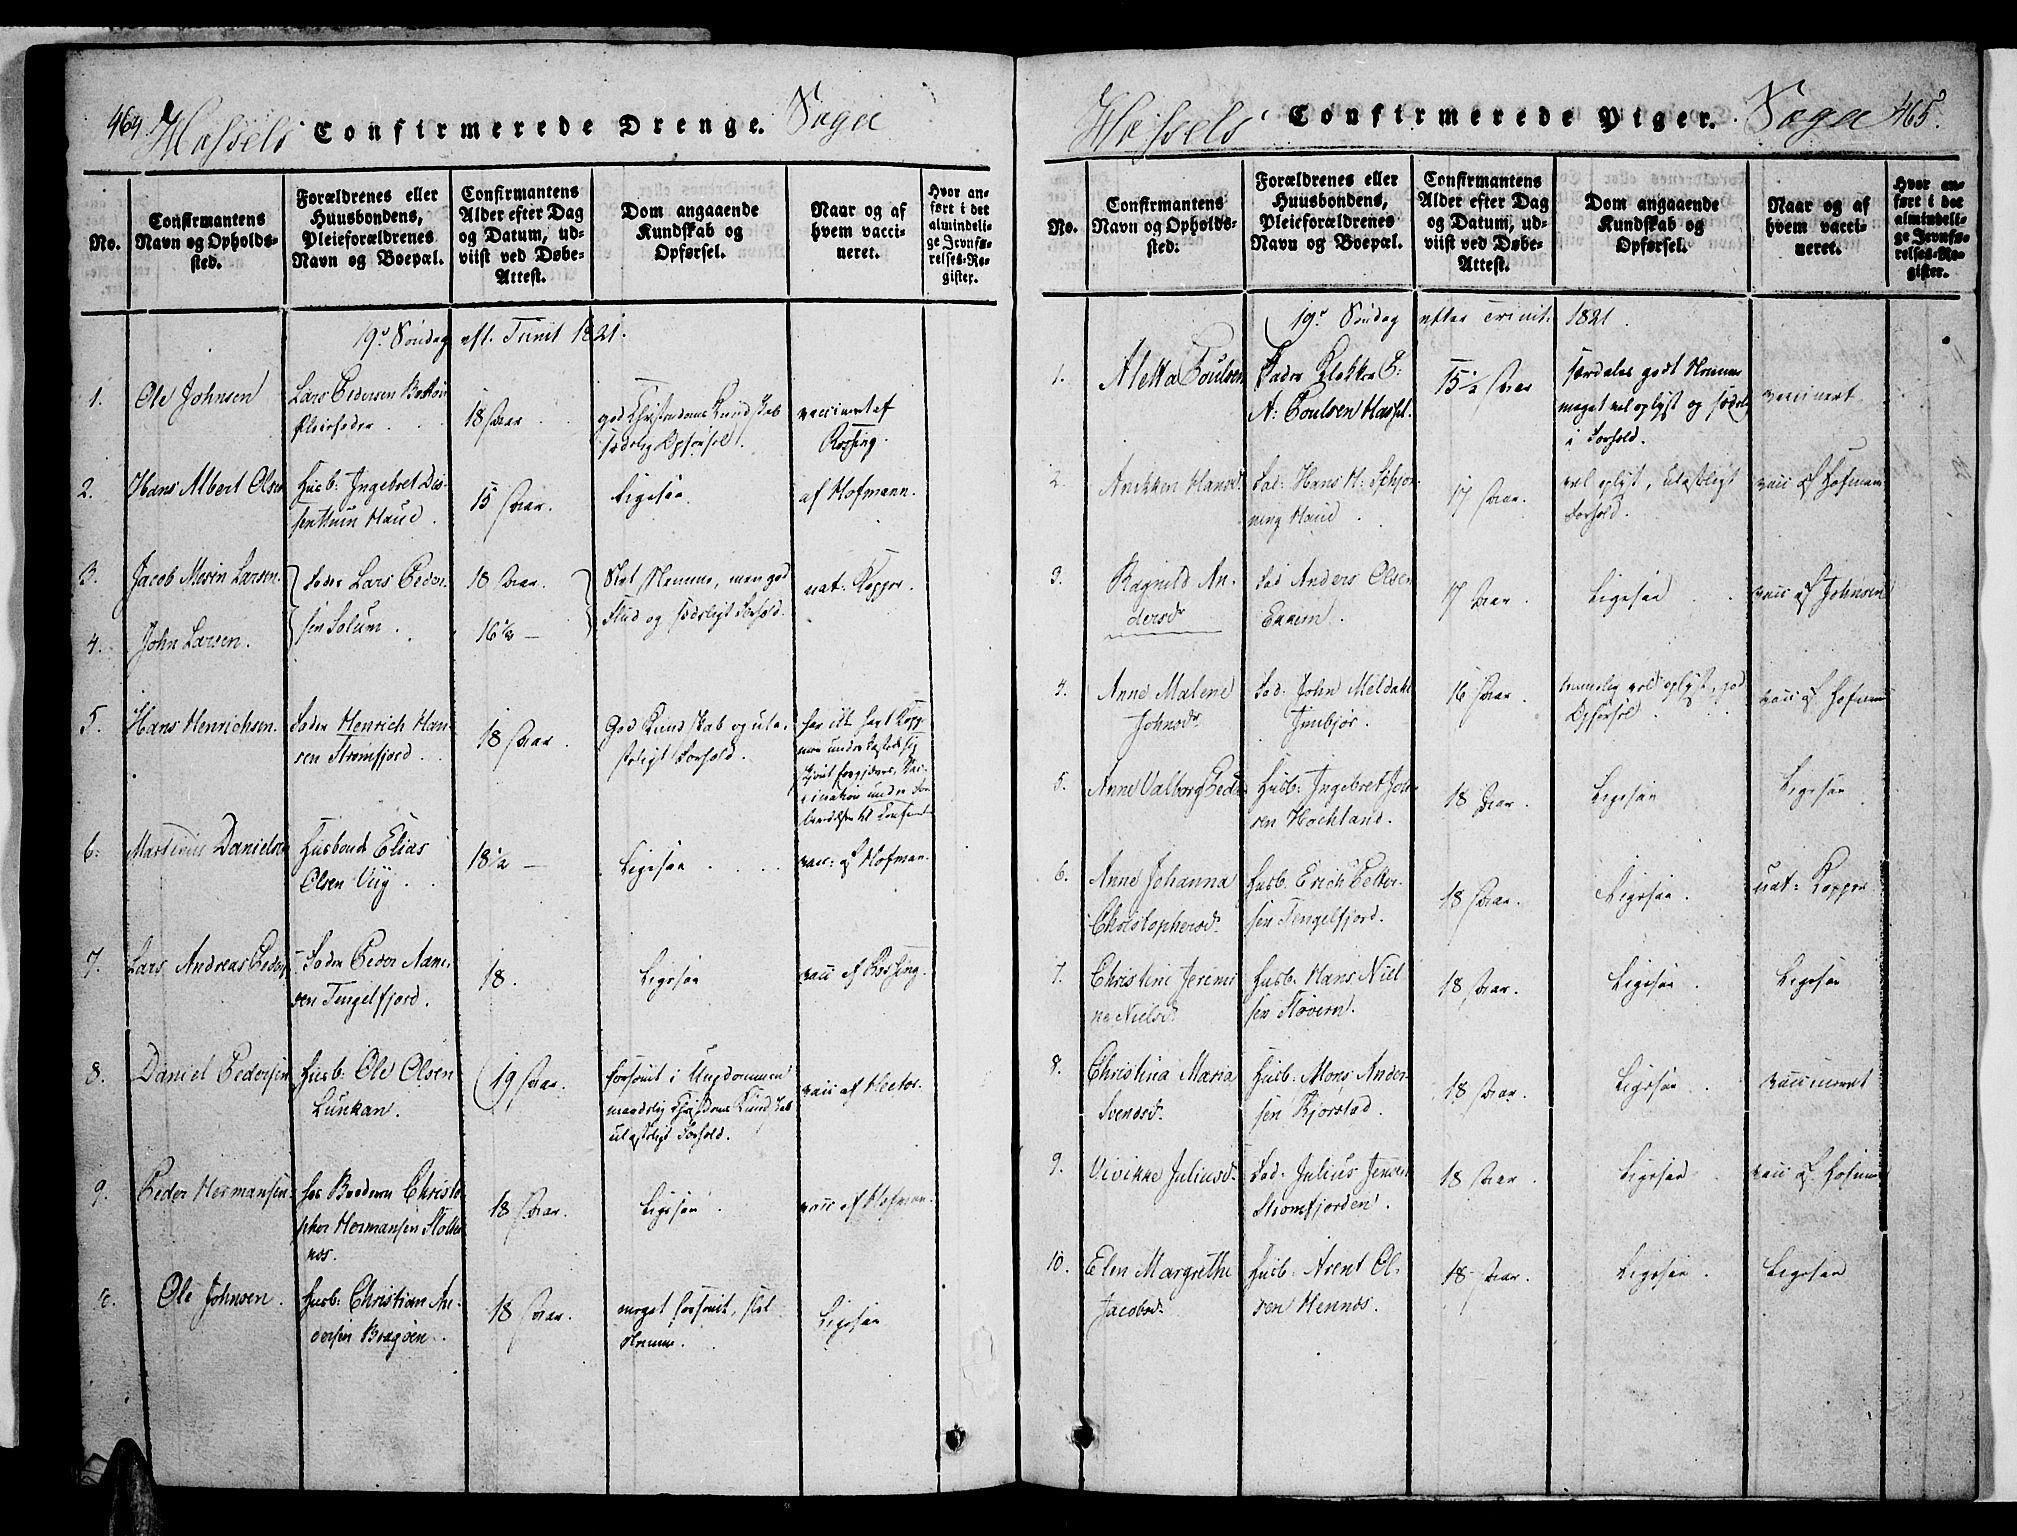 464. Hassels Confirmerede Drenge. Sogn
No.
Confirmantens
Navn og Opholds-
sted.
Forældrenes eller
Huusbondens,
Pleieforældrenes
Navn og Boepæl.
Confirmantens
Alder efter Dag
og Datum, ud-
viist ved Døbe-
Attest.
Dom angaaende
Kundskab og
Opførsel.
Naar og af
hvem vacci-
neret.
Hvor an-
ført i det
almindeli-
ge Jevnfø-
relses-Re-
gister.
19de Søndag eft. Trinit 1821.
1. Ole Johnsen
Lars Pedersen
Pleiefader
18 Aar
god Christendoms Kundskab
sædelig Opførsel.
vaccineret af
Røssing.
2. Hans Albert Olsen
Husb: Ingebret
Haue.
15 Aar.
Ligesaa
af Hofmann.
3. Jacob Mosin Larsen.
4. John Larsen.
Fader Lars Peder-
sen Solum.
18 Aar.
16½ —
Slet Nemme, men god
Flid og sædeligt Forhold.
nat: Kopper.
5. Hans Henrichsen.
Fader Henrich Han-
sen Strømfjord.
18 Aar.
God Kundskab og ula-
steligt Forhold.
har ikke havt Kopp-
6. Martinus Danielsen
Husbond Elias
Olsen Viig.
18½ —
Ligesaa
vac: af Hofman.
7. Lars Andreas Peders
Fader Peder Aane-
sen Tengelfjord.
18.
Ligesaa
vacc af Røssing.
8. Daniel Pedersen
Husb. Ole Olsen
Lunkan.
19 Aar.
forsømt i Ungdommen
maadelig Christendoms Kundskab
ulasteligt Forhold.
vacc af Hector.
9. Peder Hermansen
hos Broderen Christo
pher Hermansen Stokke
nes.
18 Aar.
Ligesaa
vacc af Hofman.
Ole Johnsen.
Husb: Christian An-
dersen Bragøen.
18 Aar.
meget forsømt, slet
Nemme.
Ligesaa
Hassels Confirmerede Piger. Sogn 465.
No.
Confirmantens
Navn og Opholds-
sted.
Forældrenes eller
Huusbondens,
Pleieforældrenes
Navn og Boepæl.
Confirmantens
Alder efter Dag
og Datum, ud-
viist ved Døbe-
Attest.
Dom angaaende
Kundskab og
Opførsel.
Naar og af
hvem vacci-
neret.
Hvor an-
ført i det
almindeli-
ge Jevnfø-
relses-Re-
gister.
19de Søndag efter Trinit: 1821.
1. Aletta Poulsen
Fader Klokker P:
A: Poulsen Hassel.
15½ Aar
særdeles godt Nemme
meget vel oplyst og sædelig
i Forhold.
vaccinert
2. Anikken Hansd.
Fad: Hans H: Schjør-
ning Haue
17 Aar.
vel oplyst, ulasteligt
Forhold.
vacc af Hofman
3. Ragnild An-
dersdr
Fad Anders Olsen
Exxern.
17 Aar
Ligesaa
vacc af Johnsen
4. Anne Malene
Johnsdr
Fad: John Meldahl
16 Aar.
temmelig vel oplyst, god
Opførsel.
vacc af Hofman
5. Anne Valborg Peders
Husb: Ingebret Joh
sen Hochland.
18 Aar.
Ligesaa
Ligesaa
6. Anne Johanna
Christophersd.
Husb. Erich Petter-
sen Tengelfjord.
18 Aar.
Ligesaa.
nat: Kopper
7. Christine Jeremi
ne Nielsd.
Husb. Hans Niel
sen Støvern.
18 Aar.
Ligesaa.
Ligesaa
8. Christina Maria
Svendsd.
Husb. Mons Ander-
sen Kjørstad.
18 Aar.
Ligesaa
vaccineret
9. Vivikke Juliusd.
Fad. Julius Jensen
Strømfjorden.
18 Aar.
Ligesaa
vacc af Hofman
10. Elen Margrethe
Jacobsd.
Husb. Arent Ol-
sen Hennes.
18 Aar.
Ligesaa.
Ligesaa